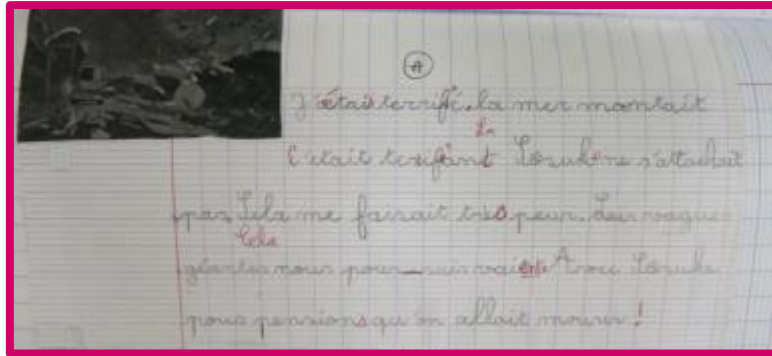 A
J'étais terrifié. la mer montait
la
C'était terrifiant ne s'attachait
pas Cela me faisait très peur. Les vagues
Cela
géantes nous pour_suivaient. Avec
nous pensions qu'on allait mourir !